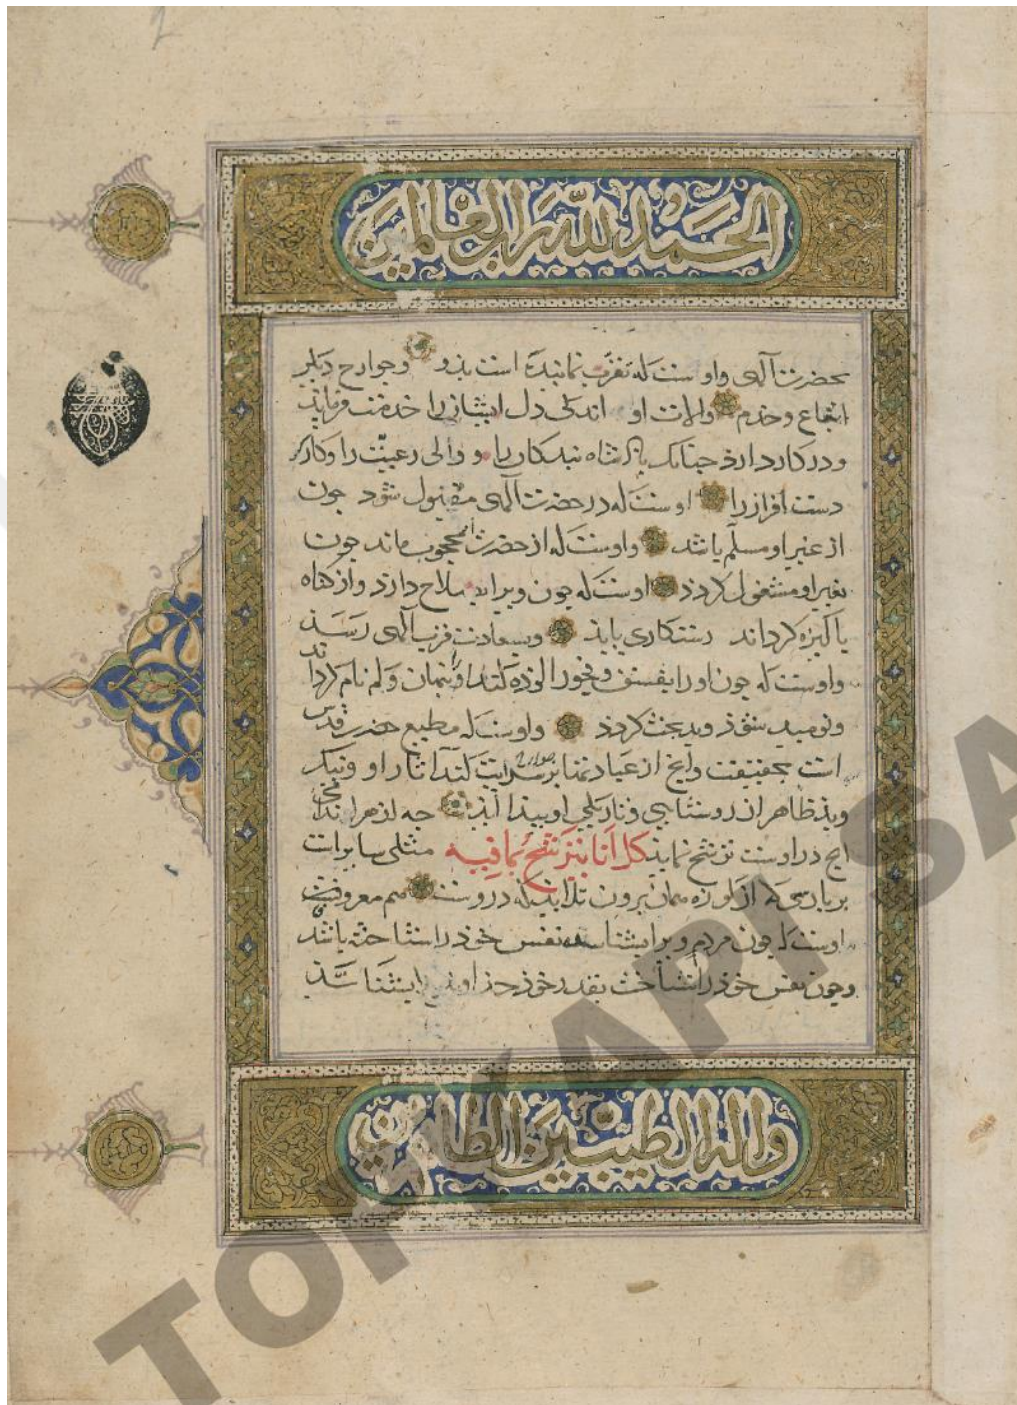 2
الحمد لله رب العالمین
بحضرت آلهی واوست که تقرب نماینده است بذو وجوارح دیکر
اتباع وخدم والات او اند کی دل ایشان را خدمت فرماید
ودر کار دارد جنانک باذشاه بندکان را و والی رعیت را وکارکر
دست افزار را اوست که در حضرت آلهی مقبول شوذ جون
از غیر او مسلم باشد واوست که از حضرت محجوب ماند جون
بغیر او مشغول کردذ اوست که جون ویرا بصلاح دارذ واز کناه
باکیزه کرداند رستکاری یابذ وبسعادت قرب آلهی رسذ
واوست که جون اورا بفسق وفجور الوذه کند او بنمان وکم نام کردانذ
ونومید شوذ وبدبخت کردذ واوست که مطیع حضرت قدس
است بحقیقت وانج از عبادتها بر جوارح سرایت کند آثار او ونیک
وبذ ظاهر از روشنایی وتاریکی او بیذا آیذ جه از هر اندامی
انج در اوست ترشح نمایذ کل انا یترشح بما فیه مثلی سایرست
بر بارسی که از کوزه همان برون تلابذ که دروست هم معروفست
اوست که جون مردم ویرا بشناسد نفس خوذ را شناخته باشد
وجون نفس خوذ را شناخت بقدر خوذ خداوند را بشناسذ
واله الطیبین الطاهرین
TOPKAPI SA